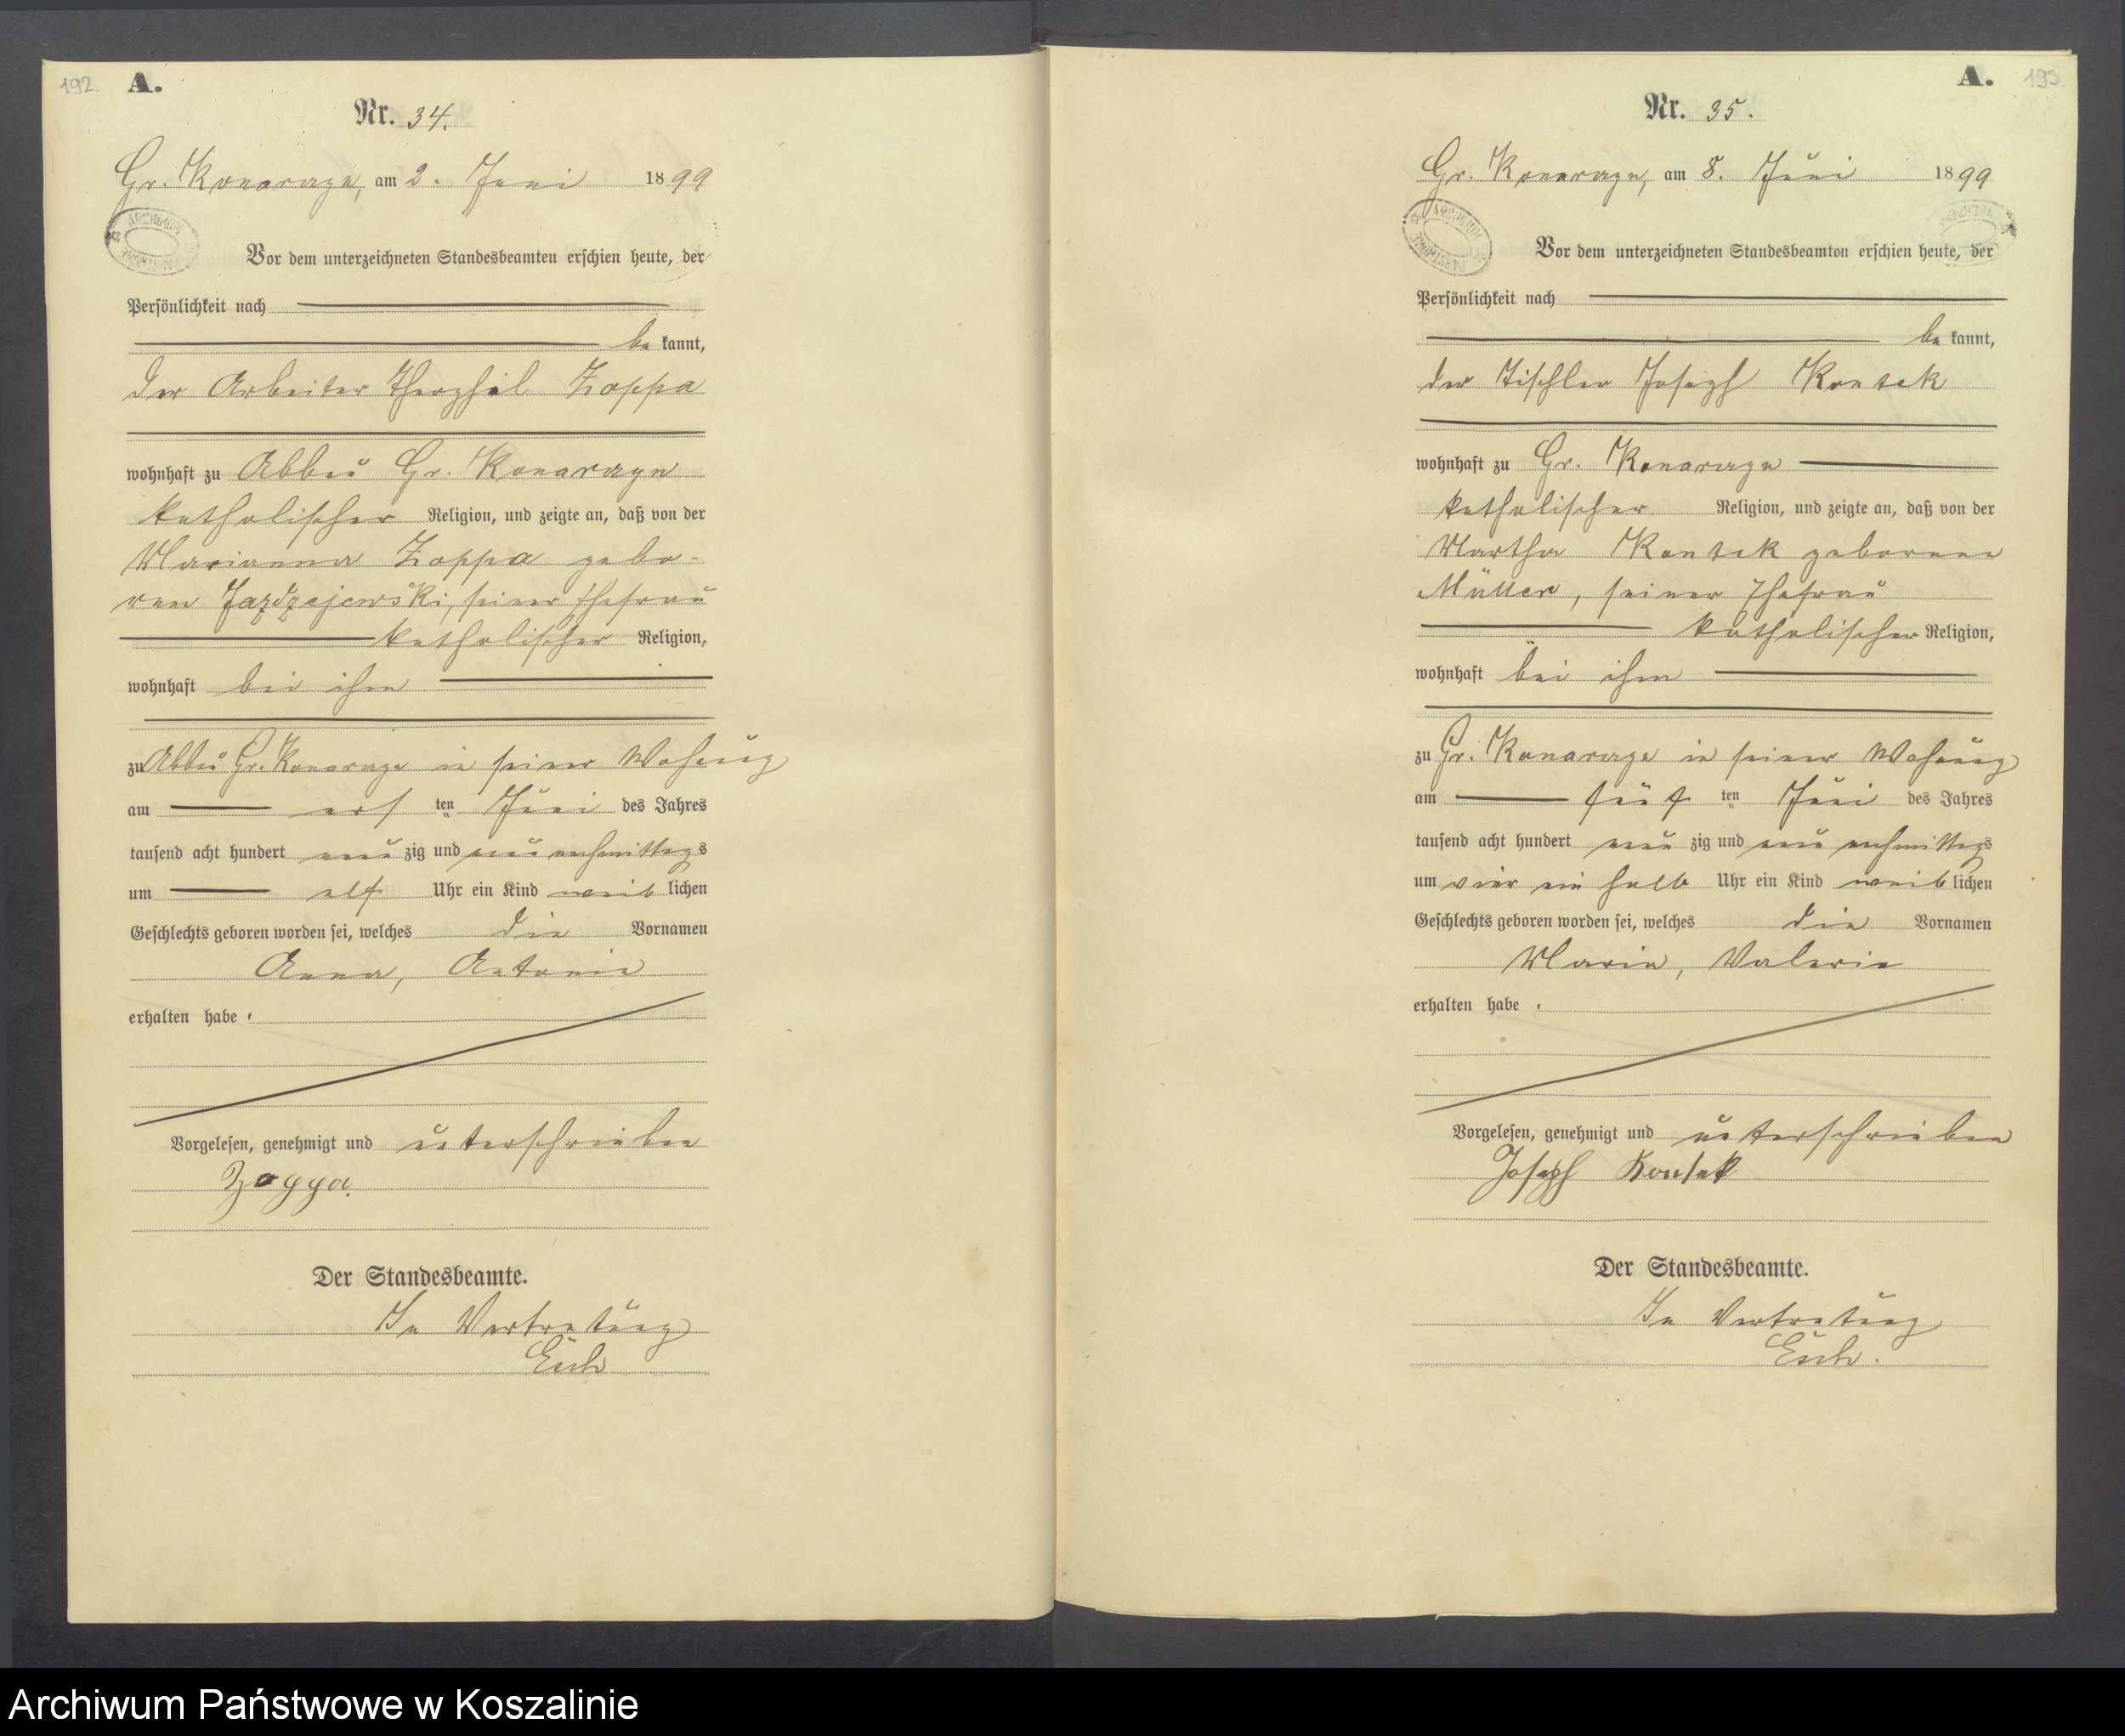 192.
A.
Nr. 34.
Gr. Konarzyn, am 2. Juni 1899
ARCHIWUM
Vor dem unterzeichneten Standesbeamten erschien heute, der
Persönlichkeit nach
be kannt,
der Arbeiter Theophil Zoppa
wohnhaft zu Abbau Gr. Konarzyn
katholischer Religion, und zeigte an, daß von der
Marianna Zoppa gebo-
ren Jazdzejewski, seiner Ehefrau
katholischer Religion,
wohnhaft bei ihm
zu Abbau Gr. Konarzyn in seiner Wohnung
am ersten Juni des Jahres
tausend acht hundert neunzig und neun nachmittags
um elf Uhr ein Kind weiblichen
Geschlechts geboren worden sei, welches die Vornamen
Anna, Antonie
erhalten habe.
Vorgelesen, genehmigt und unterschrieben
Zoppa.
Der Standesbeamte.
In Vertretung
193.
A.
Nr. 35.
Gr. Konarzyn, am 8. Juni 1899
ARCHIWUM
Vor dem unterzeichneten Standesbeamten erschien heute, der
Persönlichkeit nach
be kannt,
der Tischler Joseph Kontek
wohnhaft zu Gr. Konarzyn
katholischer Religion, und zeigte an, daß von der
Martha Kontek geborene
Müller, seiner Ehefrau
katholischer Religion,
wohnhaft bei ihm
zu Gr. Konarzyn in seiner Wohnung
am fünften Juni des Jahres
tausend acht hundert neunzig und neun nachmittags
um vier ein halb Uhr ein Kind weiblichen
Geschlechts geboren worden sei, welches die Vornamen
Maria, Valerie
erhalten habe.
Vorgelesen, genehmigt und unterschrieben
Joseph Kontek
Der Standesbeamte.
In Vertretung
Archiwum Państwowe w Koszalinie